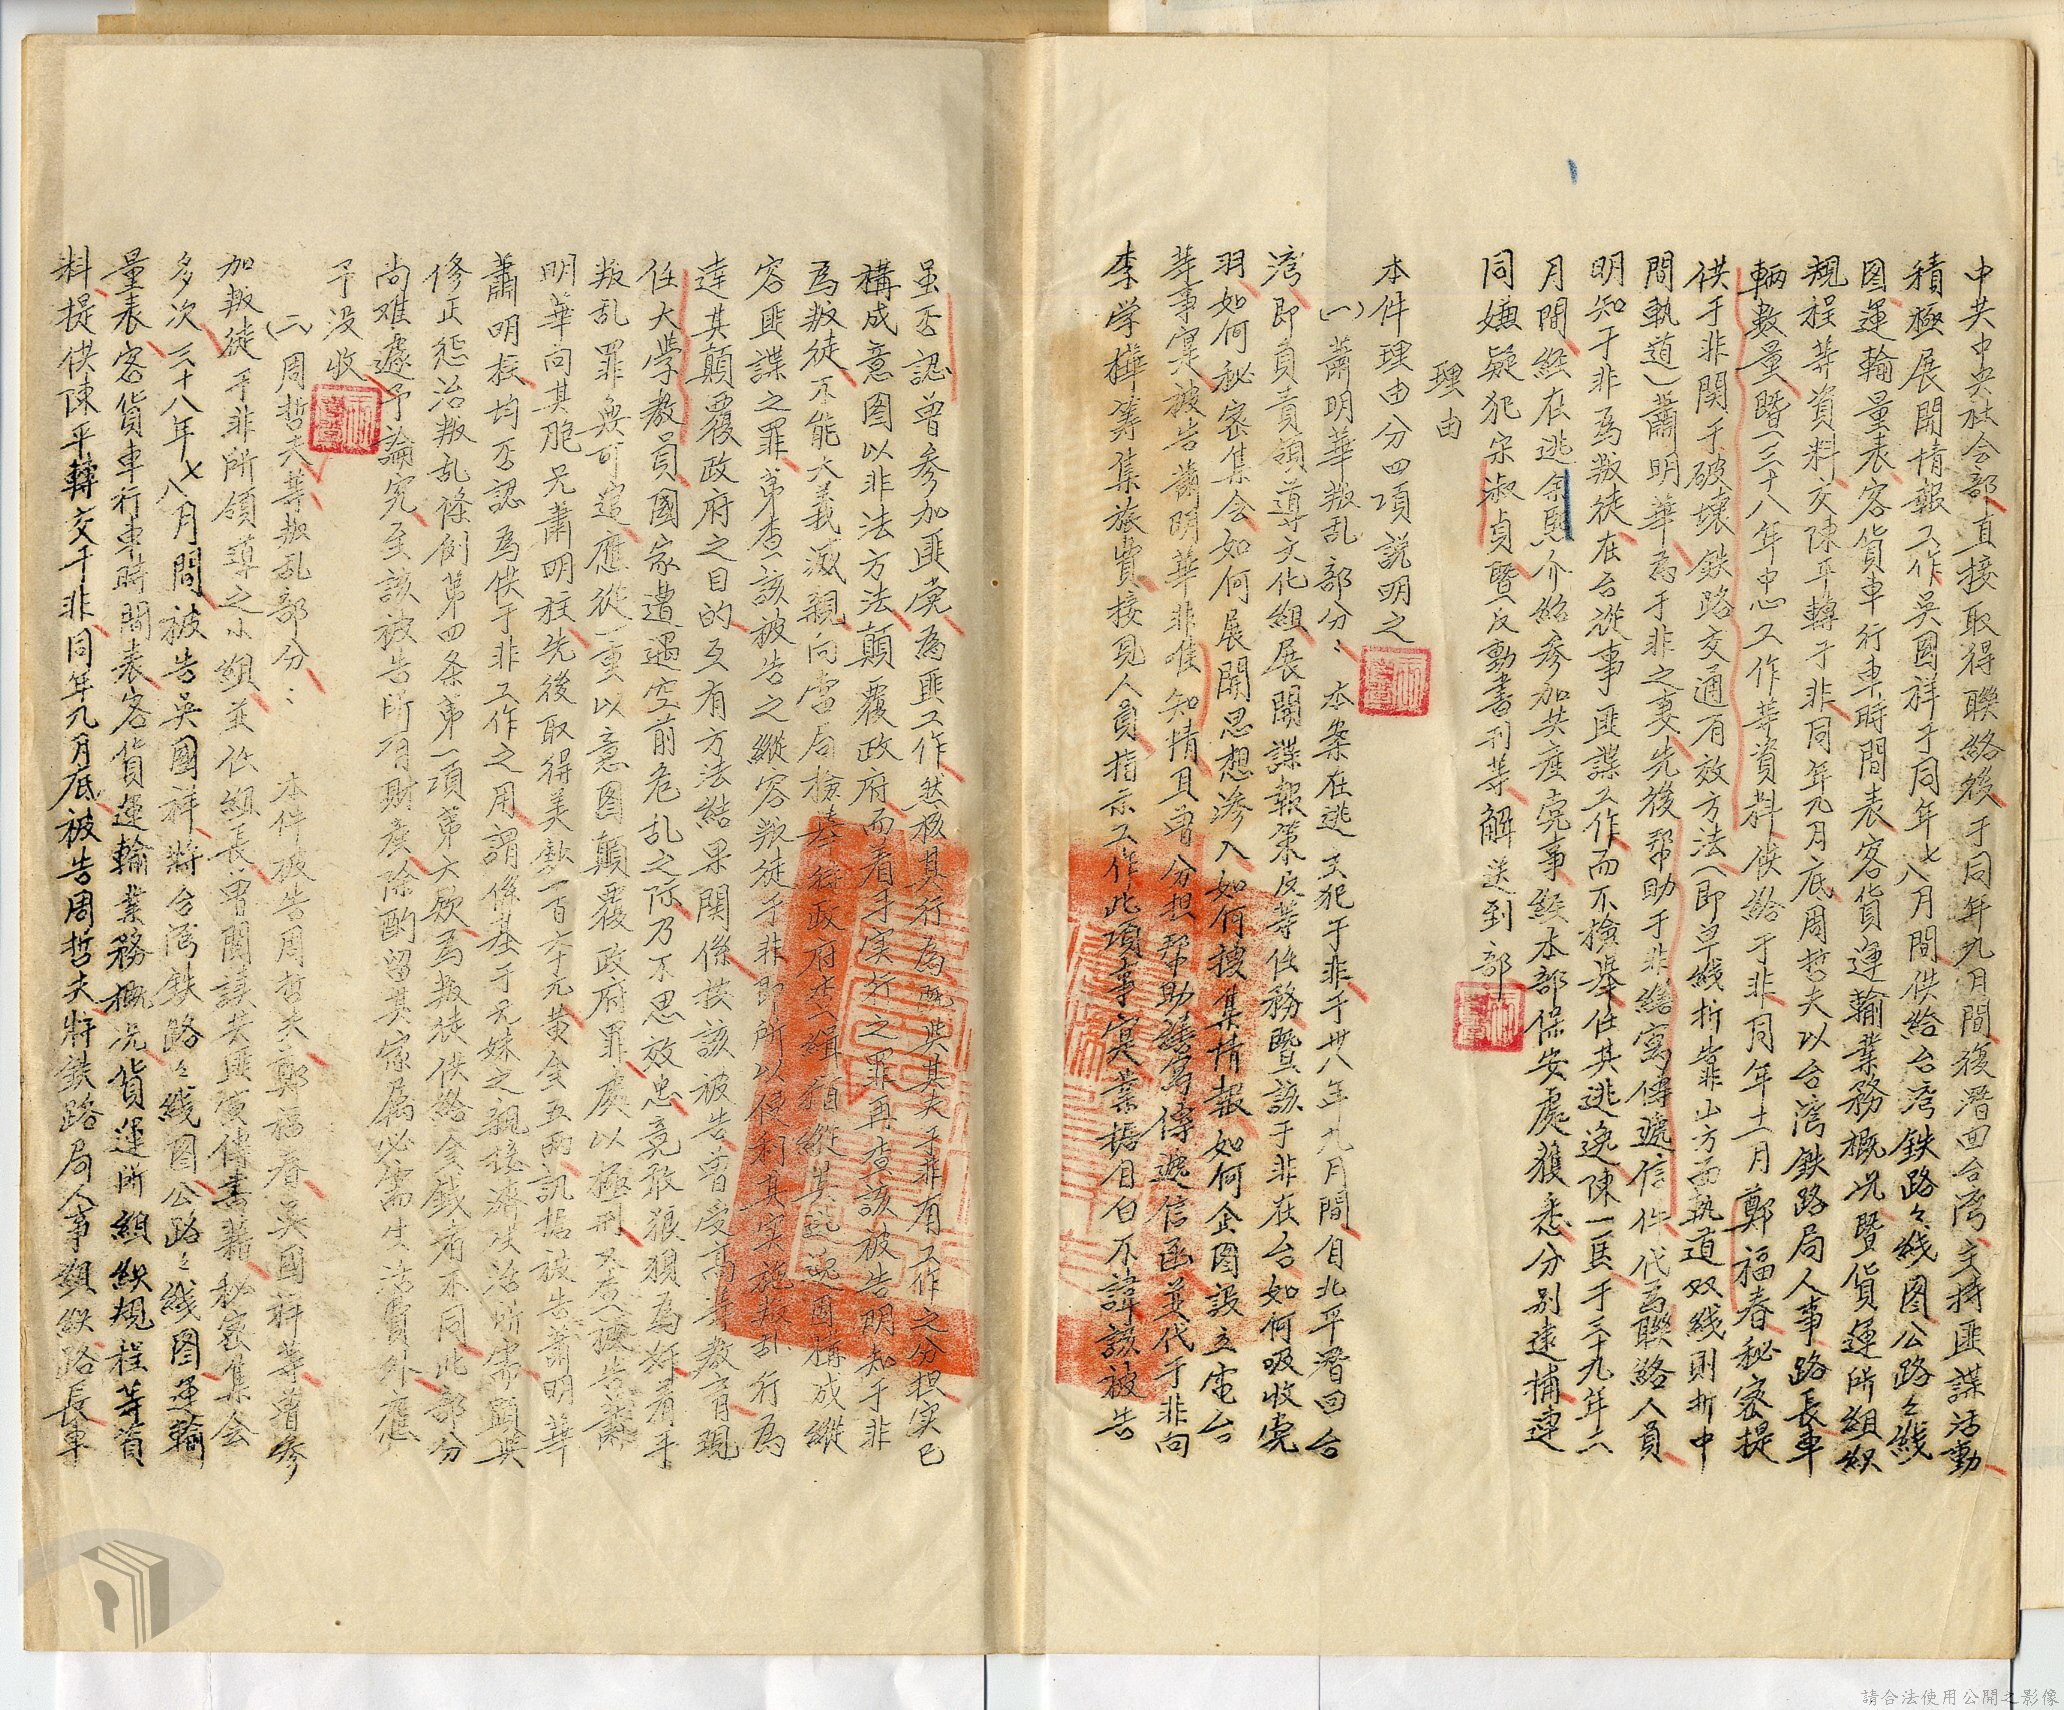 中共中央社会部直接取得聯絡後于同年九月間復潛回台湾主持匪諜活動
積極展開情報工作吳國祥于同年七八月間供給台湾鉄路々綫图公路々綫
图運輸量表客貨車行車時間表客貨運輸業務概况暨貨運所組織
規程等資料交陳平轉于非同年九月底周哲夫以台湾鉄路局人事路長車
輛数量暨(三十八年中心工作等資料供給于非同年十一月鄭福春秘密提
供于非関于破壞鉄路交通有效方法(即单綫折靠山方面軌道双綫則折中
間軌道)蕭明華為于非之妻先後帮助于非繕寫傳遞信件代為聯絡人員
明知于非為叛徒在台從事匪諜工作而不檢舉任其逃逸陳一匡于三十九年六
月間經在逃余熙介紹參加共產党事經本部保安處獲悉分别逮捕連
同嫌疑犯宋淑貞暨反動書刊等解送到部
理由
本件理由分四項説明之
(一)蕭明華叛乱部分：本案在逃主犯于非于卅八年九月間自北平潛回台
湾即負責領導文化組展開諜報策反等任務暨該于非在台如何吸收党
羽如何秘密集会如何展開思想滲入如何搜集情報如何企图設立電台
等事实被告蕭明華非唯知情且曾分担帮助繕寫傳遞信函並代于非向
李学樺等集旅費接見人員指示工作此項事实業据自白不諱該被告
虽否認曾参加匪党為匪工作然核其行為既與其夫于非有工作之分担实已
構成意图以非法方法顛覆政府而着手实行之罪再查該被告明知于非
為叛徒不能大義滅親向當局檢舉待政府查緝猶縱其逃逸固構成縱
容匪諜之罪第查該被告之縱容叛徒于非即所以便利其实施叛乱行為
達其顛覆政府之目的互有方法結果関係按該被告曾受高等教育現
任大學教員國家遭遇空前危乱之际乃不思效忠竟敢狼狽為奸着手
叛乱罪無可逭應從一重以意图顛覆政府罪處以極刑又查被告蕭
明華向其胞兄蕭明柱先後取得美欵一百六十元黄金五两訊据被告蕭明華
蕭明柱均否認為供于非工作之用謂係基于兄妹之親接濟生活所需顕與
修正惩治叛乱條例第四条第一項第六欵為叛徒供給金銭者不同此部分
尚难遽予論究至該被告所有財產除酌留其家属必需生活費外應
予没收
(二)周哲夫等叛乱部分：本件被告周哲夫鄭福春吳國祥等曾参
加叛徒于非所領導之小組並任組長曾閱讀共匪宣傳書籍秘密集会
多次三十八年七八月間被告吳國祥將台湾鉄路々綫图公路々綫图運輸
量表客貨車行車時間表客貨運輸業務概况貨運所組織規程等資
料提供陳平轉交于非同年九月底被告周哲夫將鉄路局人事類鉄路長車
請合法使用公開之影像